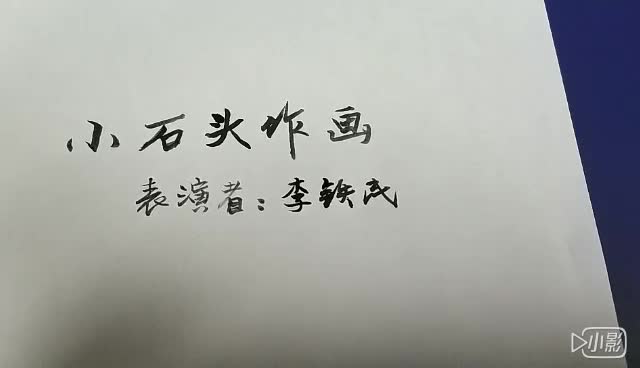 小石头作画
表演者：李铁民
小影